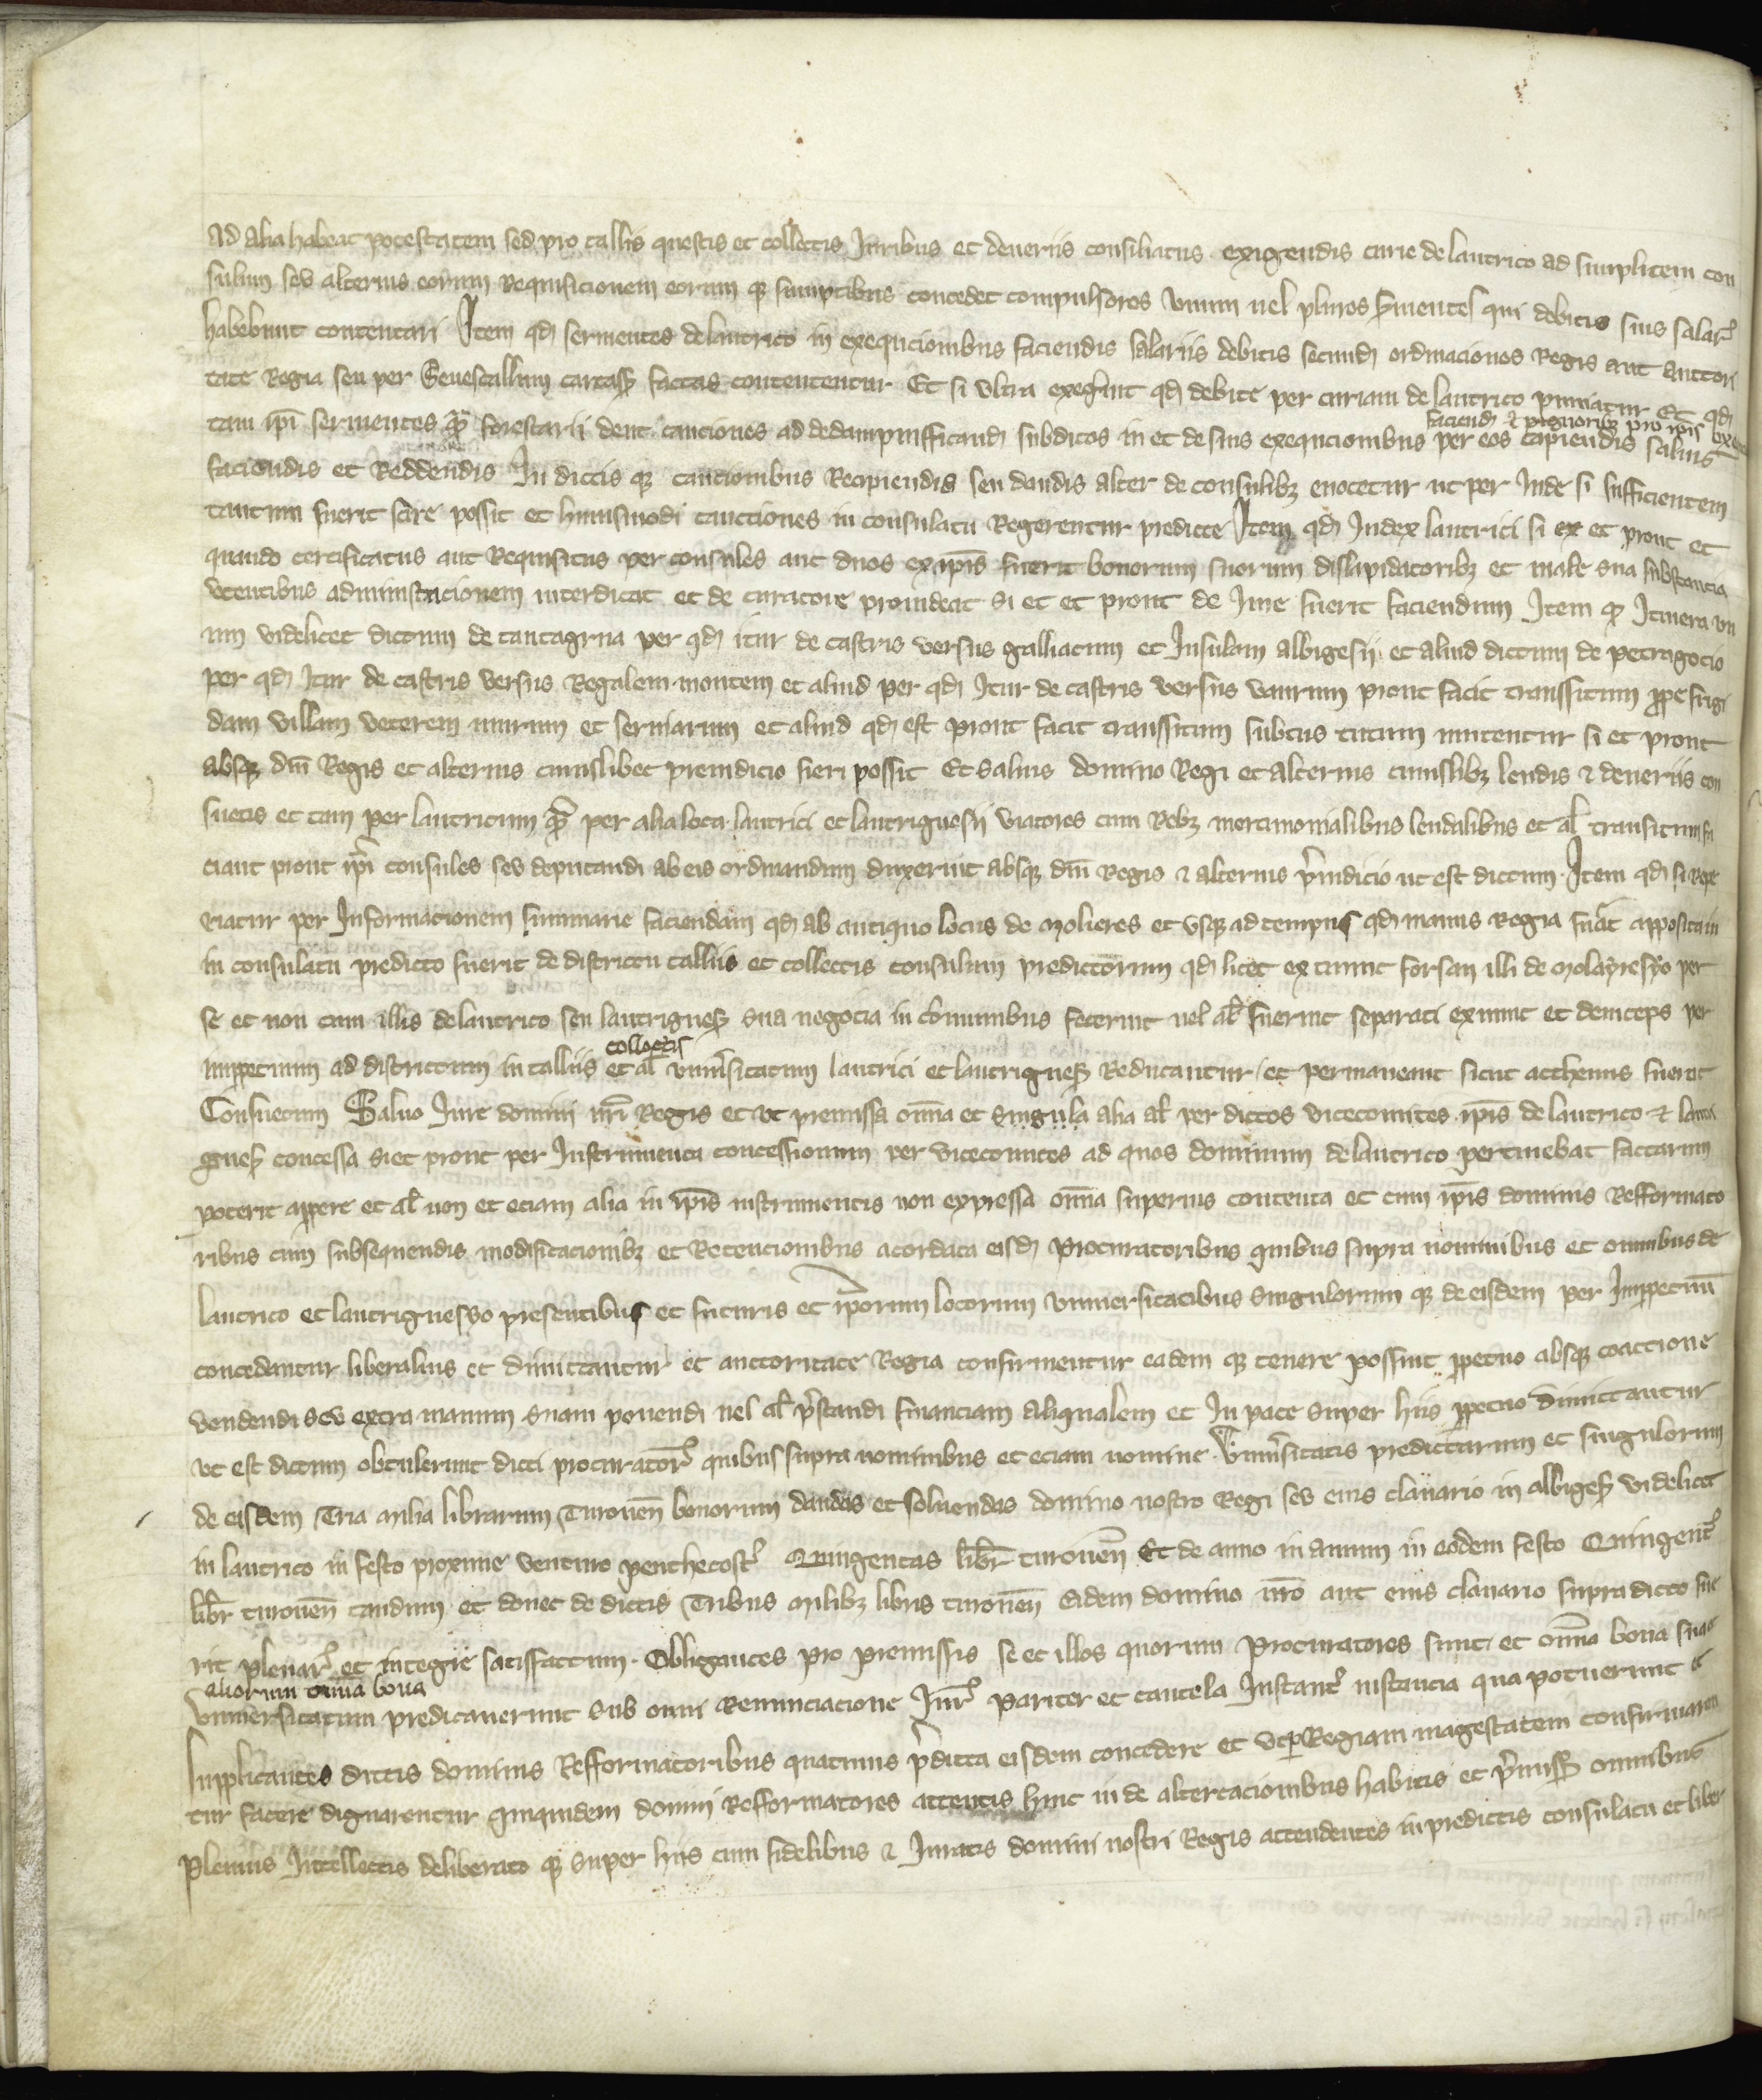 ad alia habeat potestatem sed pro talliis questis et collectis Juribus et deveriis consiliatus exigendis curie de lautrico ad simplicem con
sulum seu alterius eorum Requisicionem eorum qȝ sumptibus concedet compulsores unum vel plures servientes qui debitis suis salar̃
habebunt contentari Item qd̃ servientes de lautrico in exequcionibus faciendis salariis debitis secund̃ ordinaciones Regis aut auttori
tate Regia seu per Senescallum carcasƒ factas contententur Et si ultra exegerint qd̃ debite per curiam de lautrico puniatur Et qd̃
faciend̃ et pignoribȝ pro ip̃is
tam ip̃i servientes qm̃ forestarii dent cauciones ad dedampnifficand̃ subditos in et de suis exequcionibus per eos capiendis salvis
faciendis et Reddendis In dictis qȝ caucionibus Recipiendis seu dandis alter de consulibȝ evocetur ut per Inde si sufficientem
tantum fuerit scire possit et huiusmodi cauciones in consulatu Regerentur predicte Item qd̃ Judex lautrici si et prout et
quando certificatus aut Requisitus per consules aut duos ex ip̃is fuerit bonorum suorum dislapidatoribȝ et male sua substancia
utentibus administracionem interdicat et de curatore provideat si et et prout de Jure fuerit faciendum Item qȝ Itinera un
um videlicet dictum de cantagrua per qd̃ itur de castris versus galliacum et Insulam albigesii et aliud dictum de petragocio
per qd̃ Itur de castris versus Regalem montem et aliud per qd̃ Itur de castris versus vaurum prout facit transsitum ꝓpe frigi
dam villam veterem murum et serviarum et aliud qd̃ est prout facit transsitum subtus tutum mutentur si et prout
absqȝ dñi Regis et alterius cuiuslibet preiudicio fieri possit Et salvis domino Regi et alterius cuiuslibȝ leudis et deveriis con
suetis et tam per lautricum qm̃ per alia loca lautrici et lautriguesii viatores cum Rebȝ mercimonialibus leudalibus et al̃ transitum fa
ciant prout ip̃i consules seu deputandi ab eis ordinandum duxerint absqȝ dñi Regis et alterius p̃iudicio ut est dictum Item qd̃ si Repe
riatur per Informacionem summarie faciendam qd̃ ab antiquo locus de molieres et usqȝ ad tempus qd̃ manus Regia fuerat apposita in
in consulatu predicto fuerit de districtu talliis et collectis consulum predictorum qd̃ licet ex tunc forsan illi de molayresyo per
se et non cum illis de lautrico seu lautriguesƒ sua negocia in com̃unibus fecerint vel al̃ fuerint separati ex nunc et deinceps per
collectis
imppetuum ad districtum in talliis et al̃ uniṽsitatum lautrici et lautriguesƒ Reducantur et permaneant sicut acthenus fuerat
Consuetum Salvo Jure domini nr̃i Regis et ut premissa om̃ia et singula alia al̃ per dictos vicecomites ip̃is de lautrico et lautri
guesƒ concessa si et prout per Instrumenta concessionum per vicecomites ad quos dominium de lautrico pertinebat factarum
poterit appere et al̃ non et eciam alia in ip̃is instrumentis non expressa om̃ia superius contenta et cum ip̃is dominis Refformato
ribus cum subsequendis modificacionibȝ et Retencionibus acordata eisd̃ Procuratoribus quibus supra nominibus et omnibus de
lautrico et lautriguesyo presentibus et futuris et ip̃orum locorum universitatibus singulorum qȝ de eisdem per Imppetuũ
concedantur liberalius et dimittantur et auctoritate Regia confirmentur eadem qȝ tenere possint ꝑpetuo absqȝ coactione
vendendi seu extra manum suam ponendi vel al̃ p̃standi financiam aliqualem et In pace super hiis ꝑpetuo dimittantur
ut est dictum obtulerunt dicti procurator̃ quibus supra nominibus et eciam nomine Uniṽsitatis predictarum et singulorum
de eisdem Tria milia librarum Turoneñ bonorum dandas et solvendas domino nostro Regi seu eius clavario in albigesƒ videlicet
in lautrico in festo proxime venturo penthecost̃ Quingentas libr̃ turoneñ Et de anno in annum in eodem festo Quingent̃
libr̃ turoneñ tandiu et donec de dictis Tribus milibȝ libris turoneñ Eidem domino nr̃o aut eius clavario supradicto fue
rit plenar̃ et integre satisfactum Obligantes pro premissis se et illos quorum Procuratores sunt et om̃ia bona sua
aliorum omnia bona
Universitatum predicaverunt sub omni Renunciacione Jur̃ pariter et cautela Instant̃ instancia qua potuerunt
supplicantes dictis dominis Refformatoribus quatinus p̃dicta eisdem concedere et ut per Regiam magestatem confirmaren
tur facere dignarentur quiquidem domini Refformatores attentis hinc inde altercacionibus habitis et p̃missƒ omnibus
Plenius Intellectis deliberato qȝ super hiis cum fidelibus et Juratis domini nostri Regis attendentes in predictis consulatu et liber